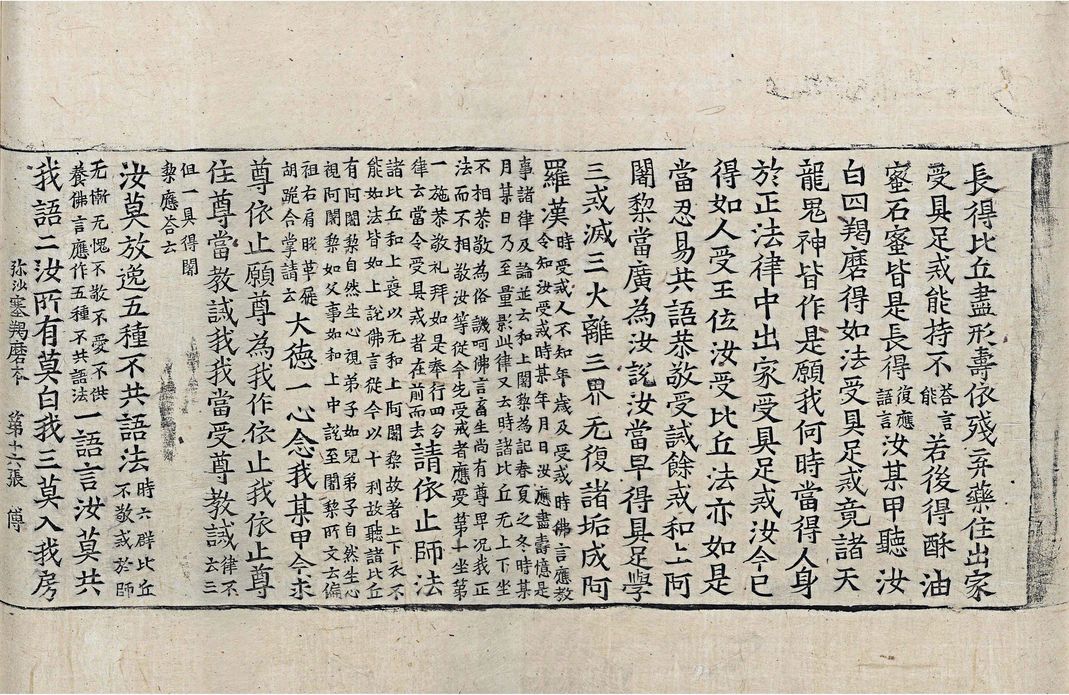 長得比丘盡形壽依殘弃藥住出家
受具足戒能持不答言能若後得酥油
蜜石蜜皆是長得復應語言汝某甲聽汝
白四羯磨得如法受具足戒竟諸天
龍鬼神皆作是願我何時當得人身
於正法律中出家受具足戒汝今已
得如人受王位汝受比丘法亦如是
當忍易共語恭敬受誡餘戒和上阿
闍黎當廣為汝說汝當早得具足學
三戒滅三火離三界无復諸垢成阿
羅漢時受戒人不知年歲及受戒時佛言應教
令知汝受戒時某年月日汝應盡壽憶是
事諸律及論並云和上闍黎為記春夏之冬時某
月某日乃至量影此律又去時諸比丘无上下坐
不相恭敬為俗譏呵佛言畜生尚有尊卑況我正
法而不相敬汝等從今先受戒者應受第一坐第
一施恭敬礼拜如是奉行四分
律云當令受具戒者在前而去請依止師法
諸比丘和上喪以无和上阿闍梨故著上下衣不
能如法皆如上說佛言從今以十利故聽諸比丘
有阿闍黎自然生心視弟子如兒弟子自然生心
視阿闍黎如父事如和上中說至闍黎所文云偏
袒右肩脫革屣
胡跪合掌請云大德一心念我某甲今求
尊依止願尊為我作依止我依止尊
住尊當教誡我我當受尊教誡律不云三
但一具得闍
黎應荅云
汝莫放逸五種不共語法時六群比丘
不敬戒於師
无慚无愧不敬不愛不供
養佛言應作五種不共語法一語言汝莫共
我語二汝所有莫白我三莫入我房
弥沙塞羯磨本 第十六張 傅